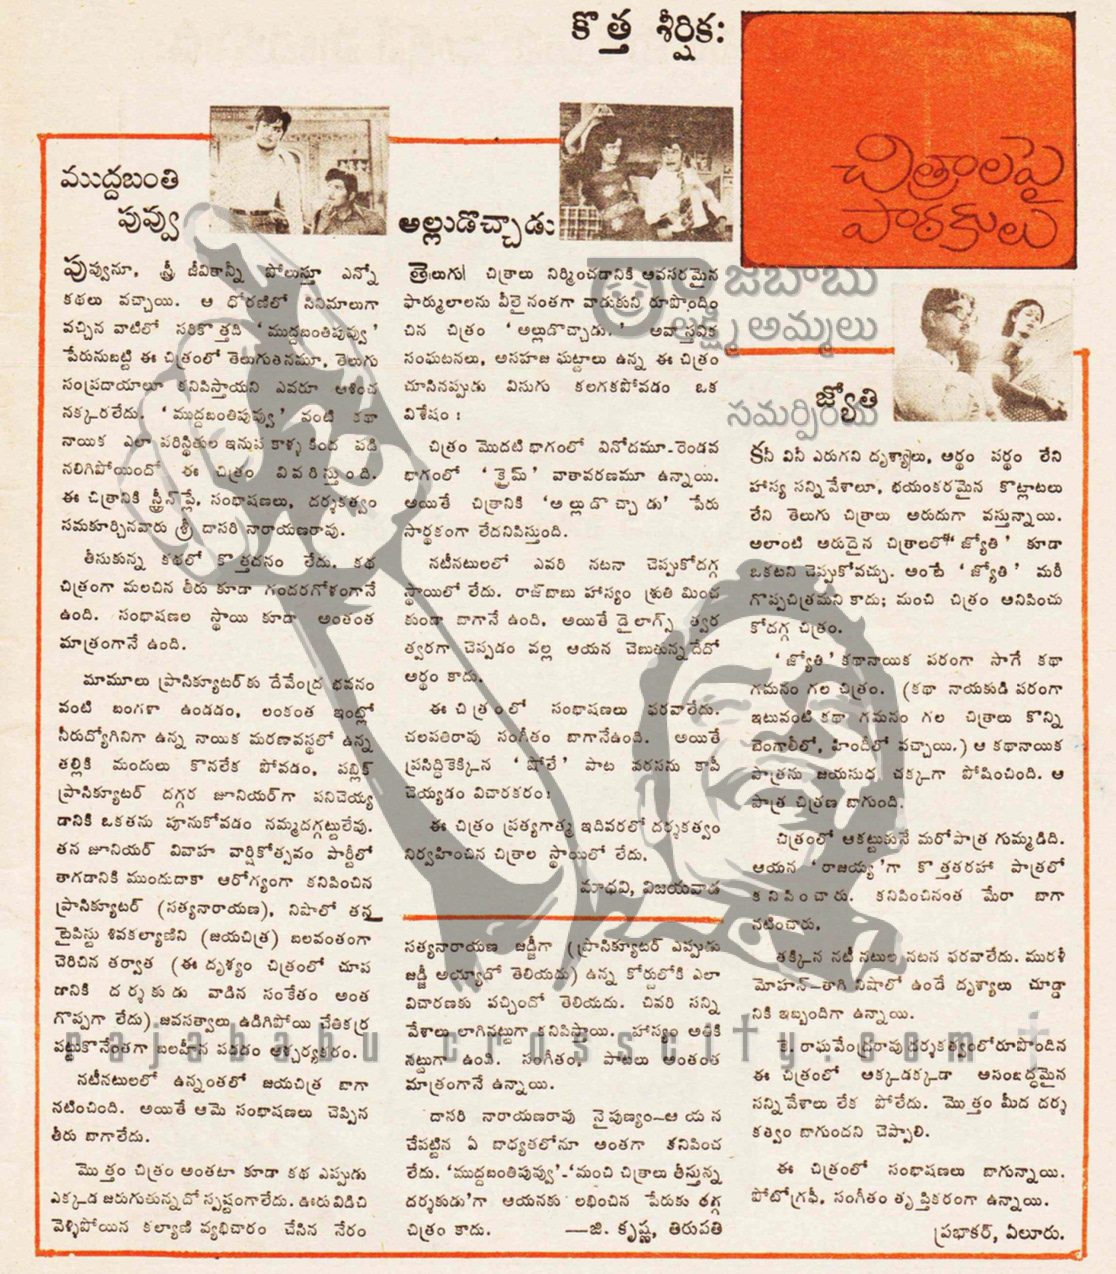 కొత్త శీర్షిక:
చిత్రాలపై
పాఠకులు
ముద్దబంతి
పువ్వు
పువ్వునూ, స్త్రీ జీవితాన్నీ పోలుస్తూ ఎన్నో
కథలు వచ్చాయి. ఆ ధోరణిలో సినిమాలుగా
వచ్చిన వాటిలో సరికొత్తది ‘ముద్దబంతిపువ్వు’
పేరునుబట్టి ఈ చిత్రంలో తెలుగుతనమూ, తెలుగు
సంప్రదాయాలూ కనిపిస్తాయని ఎవరూ ఆశించ
నక్కరలేదు. ‘ముద్దబంతిపువ్వు’ వంటి కథా
నాయిక ఎలా పరిస్థితుల ఇనుప కాళ్ళ కింద పడి
నలిగిపోయిందో ఈ చిత్రం వివరిస్తుంది.
ఈ చిత్రానికి స్క్రీన్‌ప్లే, సంభాషణలు, దర్శకత్వం
సమకూర్చినవారు శ్రీ దాసరి నారాయణరావు.
తీసుకున్న కథలో కొత్తదనం లేదు. కథ
చిత్రంగా మలచిన తీరు కూడా గందరగోళంగానే
ఉంది. సంభాషణల స్థాయి కూడా అంతంత
మాత్రంగానే ఉంది.
మామూలు ప్రాసిక్యూటర్‌కు దేవేంద్ర భవనం
వంటి బంగళా ఉండడం, లంకంత ఇంట్లో
నిరుద్యోగినిగా ఉన్న నాయిక మరణావస్థలో ఉన్న
తల్లికి మందులు కొనలేక పోవడం, పబ్లిక్
ప్రాసిక్యూటర్ దగ్గర జూనియర్‌గా పనిచెయ్య
డానికి ఒకతను పూనుకోవడం నమ్మదగ్గట్టులేవు.
తన జూనియర్ వివాహ వార్షికోత్సవం పార్టీలో
తాగడానికి ముందుదాకా ఆరోగ్యంగా కనిపించిన
ప్రాసిక్యూటర్ (సత్యనారాయణ), నిషాలో తన
టైపిస్టు శివకల్యాణిని (జయచిత్ర) బలవంతంగా
చెరిచిన తర్వాత (ఈ దృశ్యం చిత్రంలో చూప
డానికి దర్శకుడు వాడిన సంకేతం అంత
గొప్పగా లేదు) జవసత్వాలు ఉడిగిపోయి చేతికర్ర
పట్టుకొనేంతగా బలహీన పడడం ఆశ్చర్యకరం.
నటీనటులలో ఉన్నంతలో జయచిత్ర బాగా
నటించింది. అయితే ఆమె సంభాషణలు చెప్పిన
తీరు బాగాలేదు.
మొత్తం చిత్రం అంతటా కూడా కథ ఎప్పుడు
ఎక్కడ జరుగుతున్నదో స్పష్టంగాలేదు. ఊరువిడిచి
వెళ్ళిపోయిన కల్యాణి వ్యభిచారం చేసిన నేరం
అల్లుడొచ్చాడు
తెలుగు చిత్రాలు నిర్మించడానికి అవసరమైన
ఫార్ములాలను వీలైనంతగా వాడుకుని రూపొందిం
చిన చిత్రం ‘అల్లుడొచ్చాడు.’ అవాస్తవిక
సంఘటనలు, అసహజ ఘట్టాలు ఉన్న ఈ చిత్రం
చూసినప్పుడు విసుగు కలగకపోవడం ఒక
విశేషం !
చిత్రం మొదటి భాగంలో వినోదమూ-రెండవ
భాగంలో ‘క్రైమ్’ వాతావరణమూ ఉన్నాయి.
అయితే చిత్రానికి ‘అల్లుడొచ్చాడు’ పేరు
సార్థకంగా లేదనిపిస్తుంది.
నటీనటులలో ఎవరి నటనా చెప్పుకోదగ్గ
స్థాయిలో లేదు. రాజ్‌బాబు హాస్యం శ్రుతి మించ
కుండా బాగానే ఉంది, అయితే డైలాగ్స్ త్వర
త్వరగా చెప్పడం వల్ల ఆయన చెబుతున్నదేదో
అర్థం కాదు.
ఈ చిత్రంలో సంభాషణలు ఫరవాలేదు.
చలపతిరావు సంగీతం బాగానేఉంది. అయితే
ప్రసిద్ధికెక్కిన ‘షోలే’ పాట వరసను కాపీ
చెయ్యడం విచారకరం!
ఈ చిత్రం ప్రత్యగాత్మ ఇదివరలో దర్శకత్వం
నిర్వహించిన చిత్రాల స్థాయిలో లేదు.
మాధవి, విజయవాడ
సత్యనారాయణ జడ్జీగా (ప్రాసిక్యూటర్ ఎప్పుడు
జడ్జీ అయ్యాడో తెలియదు) ఉన్న కోర్టులోకి ఎలా
విచారణకు వచ్చిందో తెలియదు. చివరి సన్ని
వేశాలు లాగినట్టుగా కనిపిస్తాయి. హాస్యం అతికి
నట్టుగా ఉంది. సంగీతం, పాటలు అంతంత
మాత్రంగానే ఉన్నాయి.
దాసరి నారాయణరావు నైపుణ్యం—ఆయన
చేపట్టిన ఏ బాధ్యతలోనూ అంతగా కనిపించ
లేదు. ‘ముద్దబంతిపువ్వు’-‘మంచి చిత్రాలు తీస్తున్న
దర్శకుడు’గా ఆయనకు లభించిన పేరుకు తగ్గ
చిత్రం కాదు. —జి. కృష్ణ, తిరుపతి
రాజబాబు
లక్ష్మీ అమ్మలు
సమర్పించు
జ్యోతి
కనీ వినీ ఎరుగని దృశ్యాలు, అర్థం పర్థం లేని
హాస్య సన్నివేశాలూ, భయంకరమైన కొట్లాటలు
లేని తెలుగు చిత్రాలు అరుదుగా వస్తున్నాయి.
అలాంటి అరుదైన చిత్రాలలో ‘జ్యోతి’ కూడా
ఒకటని చెప్పుకోవచ్చు. అంటే ‘జ్యోతి’ మరీ
గొప్పచిత్రమని కాదు; మంచి చిత్రం అనిపించు
కోదగ్గ చిత్రం.
‘జ్యోతి’ కథానాయిక పరంగా సాగే కథా
గమనం గల చిత్రం. (కథా నాయకుడి పరంగా
ఇటువంటి కథా గమనం గల చిత్రాలు కొన్ని
బెంగాలీలో, హిందీలో వచ్చాయి.) ఆ కథానాయిక
పాత్రను జయసుధ చక్కగా పోషించింది. ఆ
పాత్ర చిత్రణ బాగుంది.
చిత్రంలో ఆకట్టుకునే మరోపాత్ర గుమ్మడిది.
ఆయన ‘రాజయ్య’గా కొత్తతరహా పాత్రలో
కనిపించారు. కనిపించినంత మేరా బాగా
నటించారు.
తక్కిన నటీనటుల నటన ఫరవాలేదు. మురళీ
మోహన్—తాగి నిషాలో ఉండే దృశ్యాలు చూడ్డా
నికి ఇబ్బందిగా ఉన్నాయి.
కె. రాఘవేంద్రరావు దర్శకత్వంలోరూపొందిన
ఈ చిత్రంలో అక్కడక్కడా అసంబద్ధమైన
సన్నివేశాలు లేక పోలేదు. మొత్తం మీద దర్శ
కత్వం బాగుందని చెప్పాలి.
ఈ చిత్రంలో సంభాషణలు బాగున్నాయి.
ఫోటోగ్రఫీ, సంగీతం తృప్తికరంగా ఉన్నాయి.
ప్రభాకర్, ఏలూరు.
rajababu crosscity.com